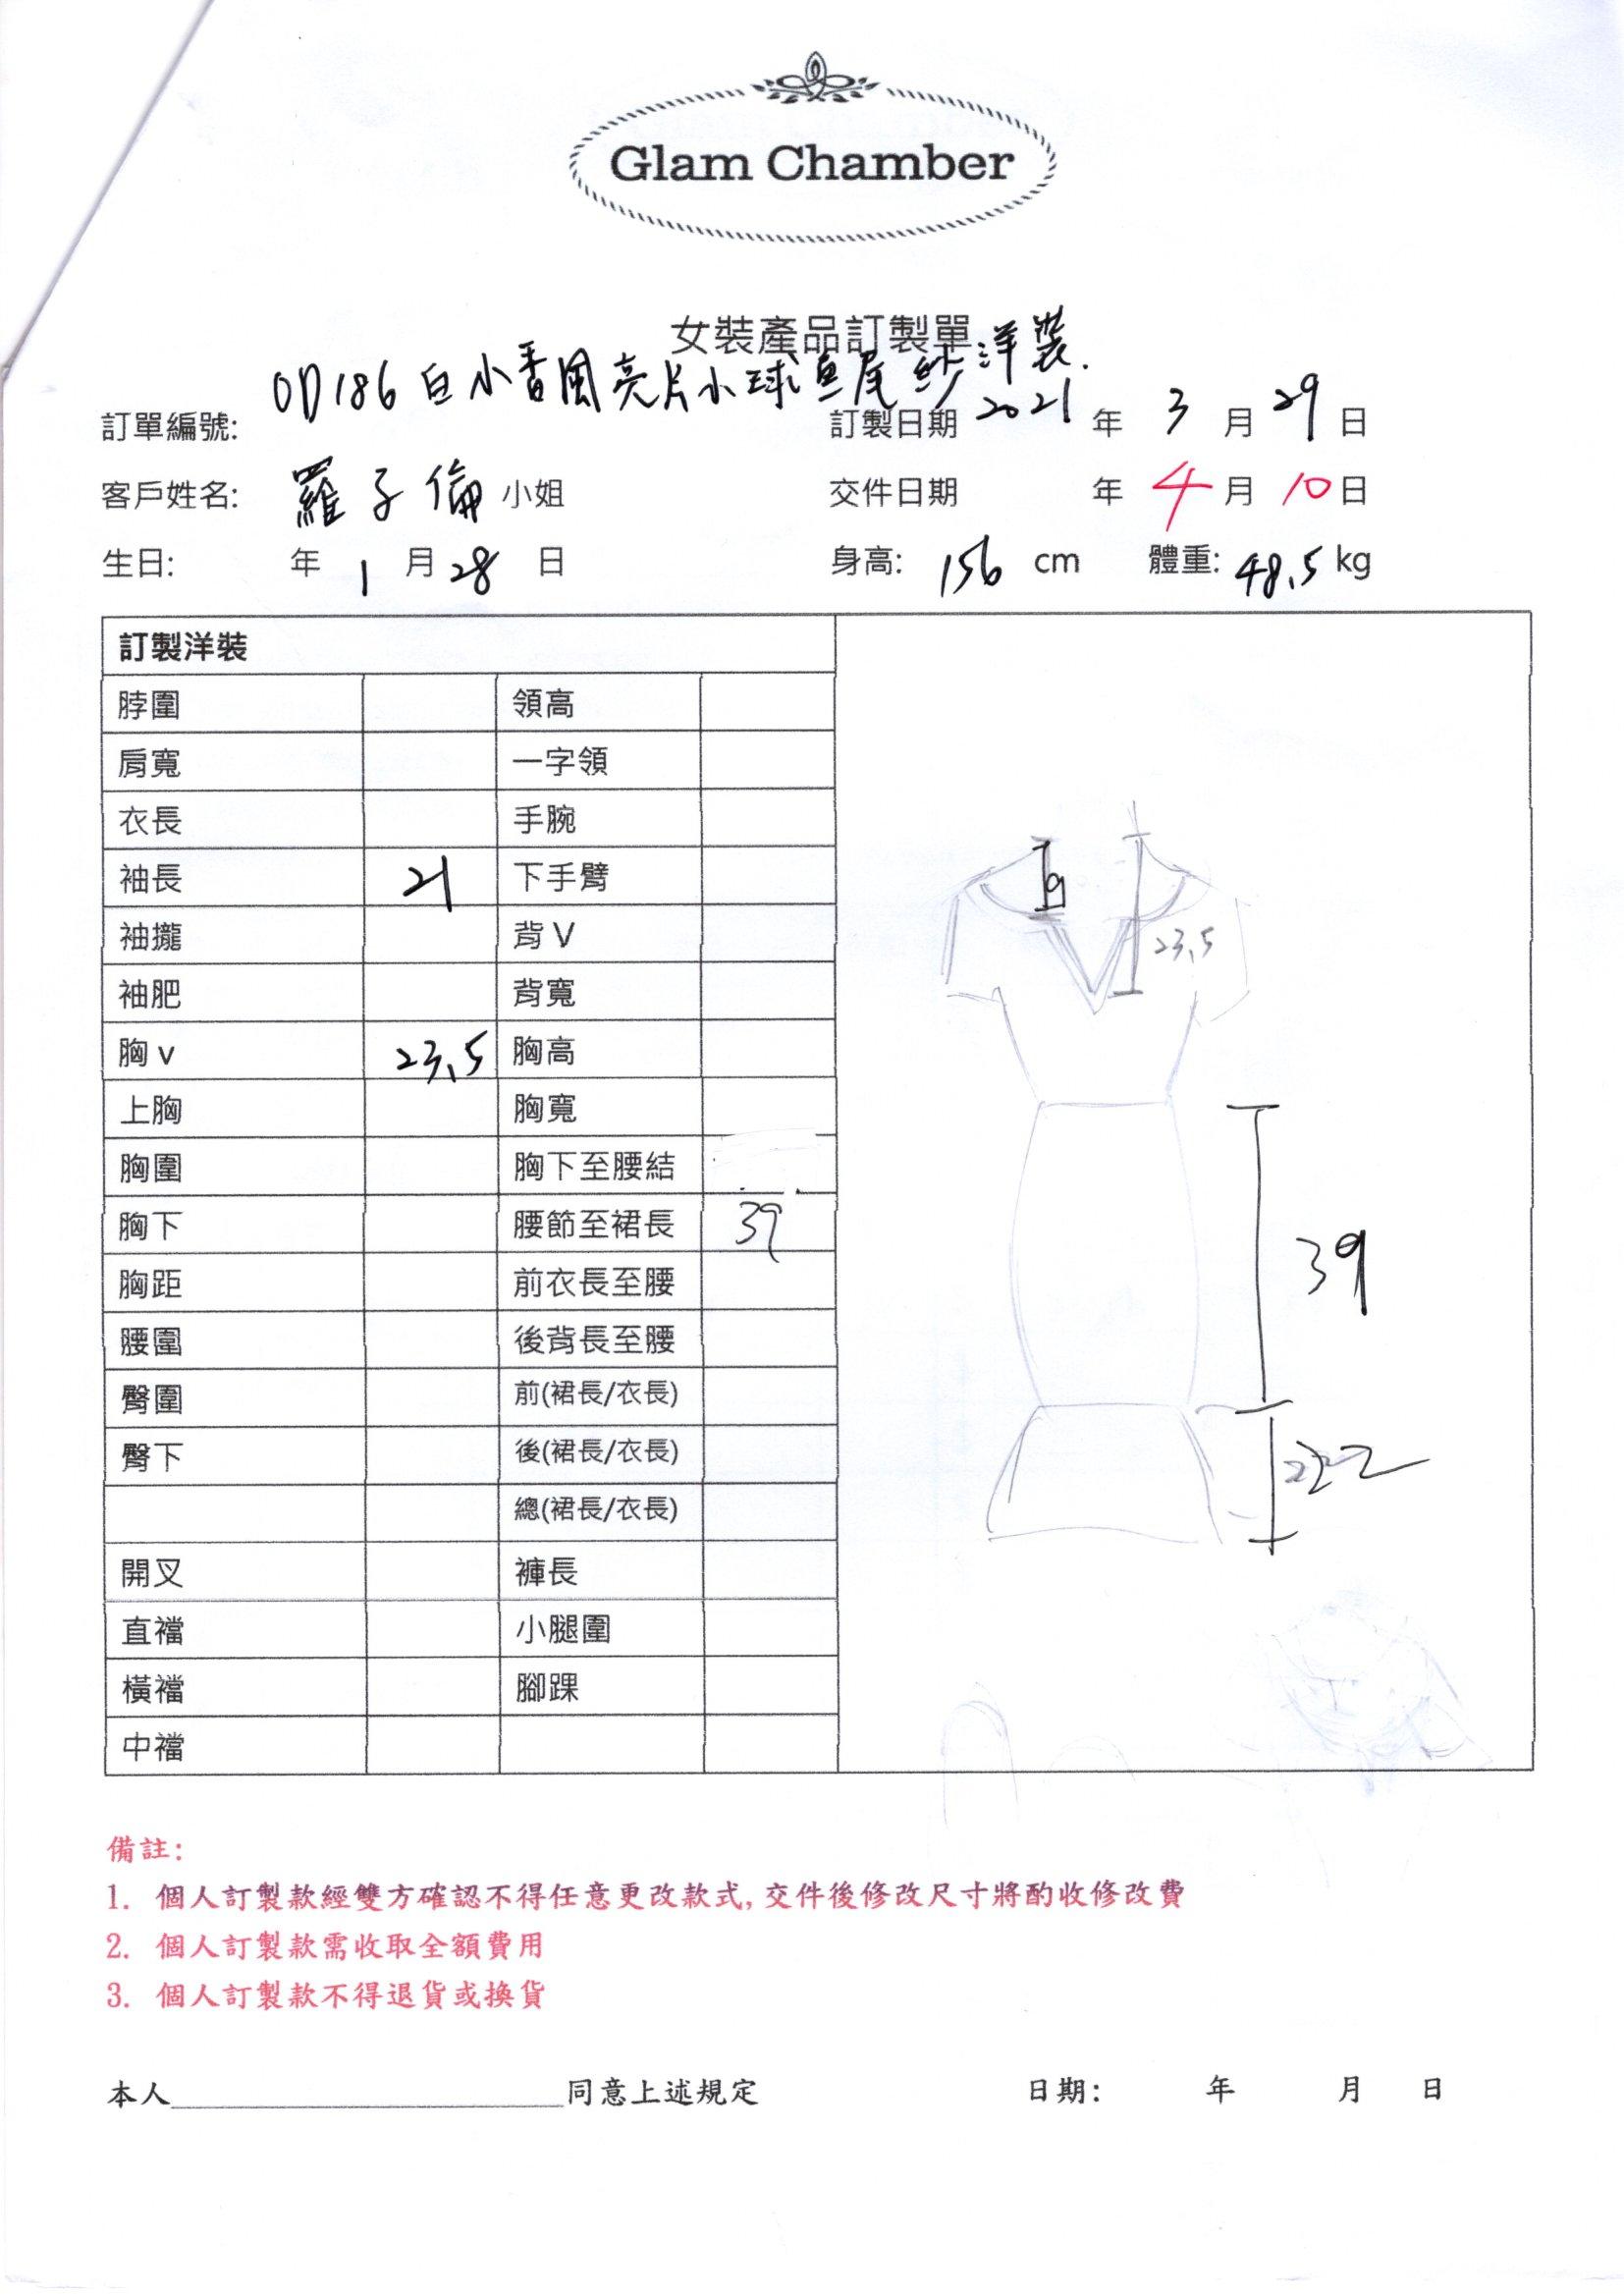 Glam Chamber
女裝產品訂製單
OD186 白小香風亮片小球魚尾紗洋裝.
訂單編號: 訂製日期 2021 年 3 月 29 日
客戶姓名: 羅子倫 小姐 交件日期 年 4 月 10 日
生日: 年 1 月 28 日 身高: 156 cm 體重: 48.5 kg
訂製洋裝
脖圍 領高
肩寬 一字領
衣長 手腕
袖長 21 下手臂
袖攏 背 V
袖肥 背寬
胸 v 23.5 胸高
上胸 胸寬
胸圍 胸下至腰結
胸下 腰節至裙長 39
胸距 前衣長至腰
腰圍 後背長至腰
臀圍 前(裙長/衣長)
臀下 後(裙長/衣長)
總(裙長/衣長)
開叉 褲長
直襠 小腿圍
橫襠 腳踝
中襠
9
23.5
39
22
備註:
1. 個人訂製款經雙方確認不得任意更改款式, 交件後修改尺寸將酌收修改費
2. 個人訂製款需收取全額費用
3. 個人訂製款不得退貨或換貨
本人 同意上述規定 日期: 年 月 日